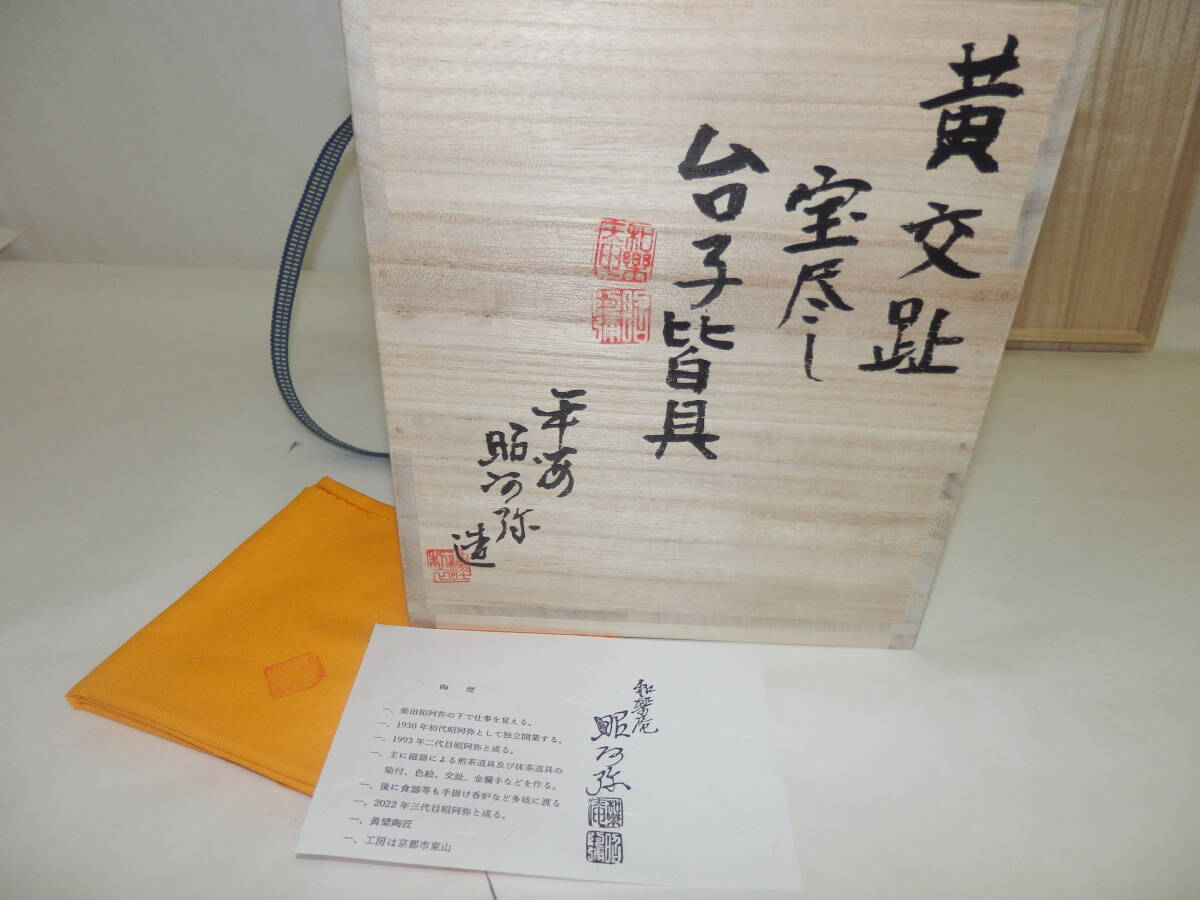 黄交趾
宝尽し
台子皆具
平安
昭阿弥
造
陶歴
一、柴田如阿弥の下で仕事を覚える。
一、1930年初代昭阿弥として独立開業する。
一、1993年二代目昭阿弥と成る。
一、主に磁器による煎茶道具及び抹茶道具の
染付、色絵、交趾、金襴手などを作る。
一、後に食器等も手掛け香炉など多岐に渡る
一、2022年三代目昭阿弥と成る。
一、黄檗陶匠
一、工房は京都市東山
和楽庵
昭阿弥